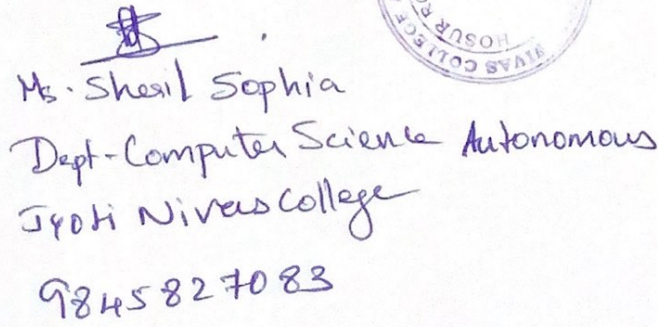 NIVAS COLLEGE
HOSUR RO
Ms. Sheril Sophia
Dept-Computer Science Autonomous
Jyoti Nivas College
9845827083